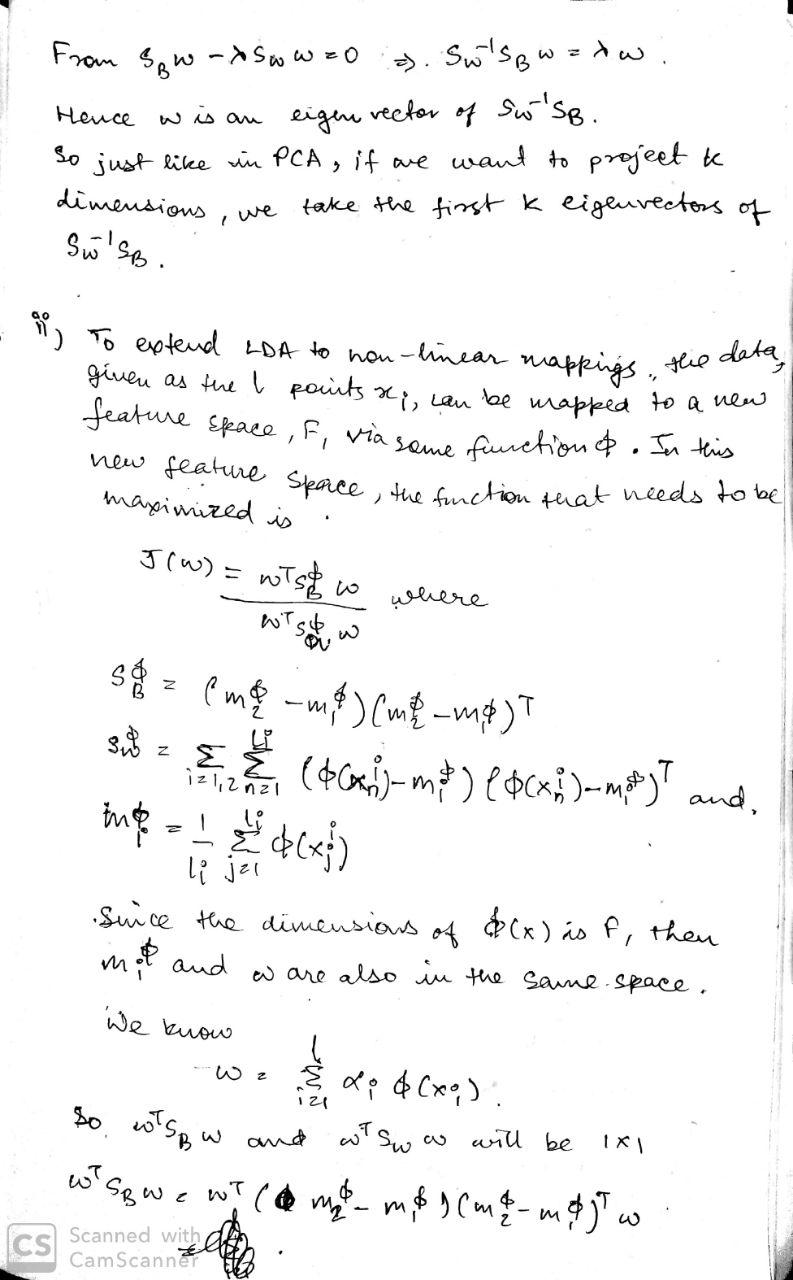 From S_B w - λ S_w w = 0 ⇒. S_w⁻¹ S_B w = λ w.
Hence w is an eigen vector of S_w⁻¹ S_B.
So just like in PCA, if we want to project k
dimensions, we take the first k eigenvectors of
S_w⁻¹ S_B.
ii) To extend LDA to non-linear mappings, the data,
given as the l points x_i, can be mapped to a new
feature space, F, via some function ϕ. In this
new feature space, the function that needs to be
maximized is.
J(w) = w^T S_B^ϕ w / w^T S_w^ϕ w where
S_B^ϕ = (m_2^ϕ - m_1^ϕ)(m_2^ϕ - m_1^ϕ)^T
S_w^ϕ = Σ_{i=1,2} Σ_{n=1}^{l_i} (ϕ(x_n^i) - m_i^ϕ)(ϕ(x_n^i) - m_i^ϕ)^T and,
m_i^ϕ = 1/l_i Σ_{j=1}^{l_i} ϕ(x_j^i)
Since the dimensions of ϕ(x) is F, then
m_i^ϕ and w are also in the same space.
We know
w = Σ_{i=1}^{l} α_i ϕ(x_i).
So w^T S_B w and w^T S_w w will be 1x1
w^T S_B w = w^T (m_2^ϕ - m_1^ϕ)(m_2^ϕ - m_1^ϕ)^T w
=
CS Scanned with
CamScanner